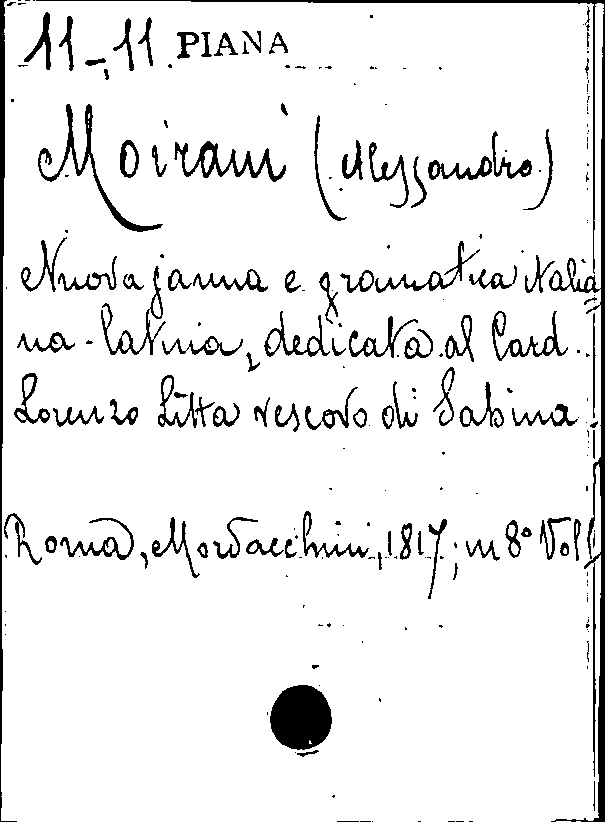 11-11 PIANA
Moirani (Alessandro)
Nuova janua e gramatica italia
na-latina, dedicata al Card.
Lorenzo Litta vescovo di Sabina
Roma, Mordacchini, 1817; in 8° Voll